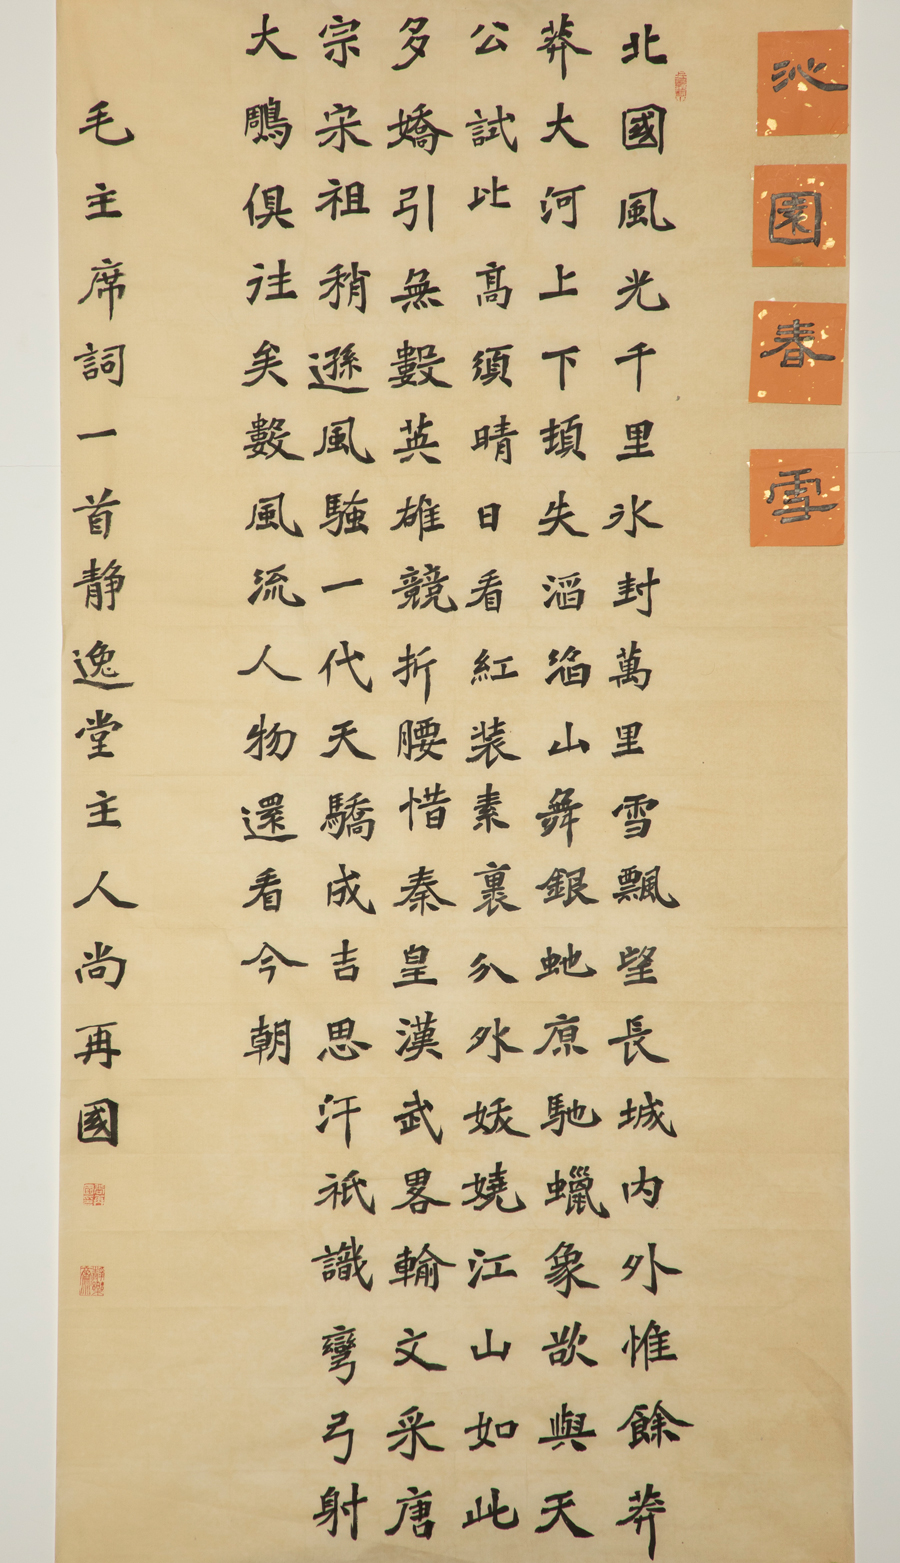 沁園春雪
北國風光千里氷封萬里雪飄望長城内外惟餘莽
莽大河上下頓失滔滔山舞銀虵原馳蠟象欲與天
公試比高須晴日看紅装素裏分外妖嬈江山如此
多嬌引無數英雄競折腰惜秦皇漢武畧輸文采唐
宗宋祖稍遜風騷一代天驕成吉思汗祇識彎弓射
大鵰俱往矣數風流人物還看今朝
毛主席詞一首静逸堂主人尚再國